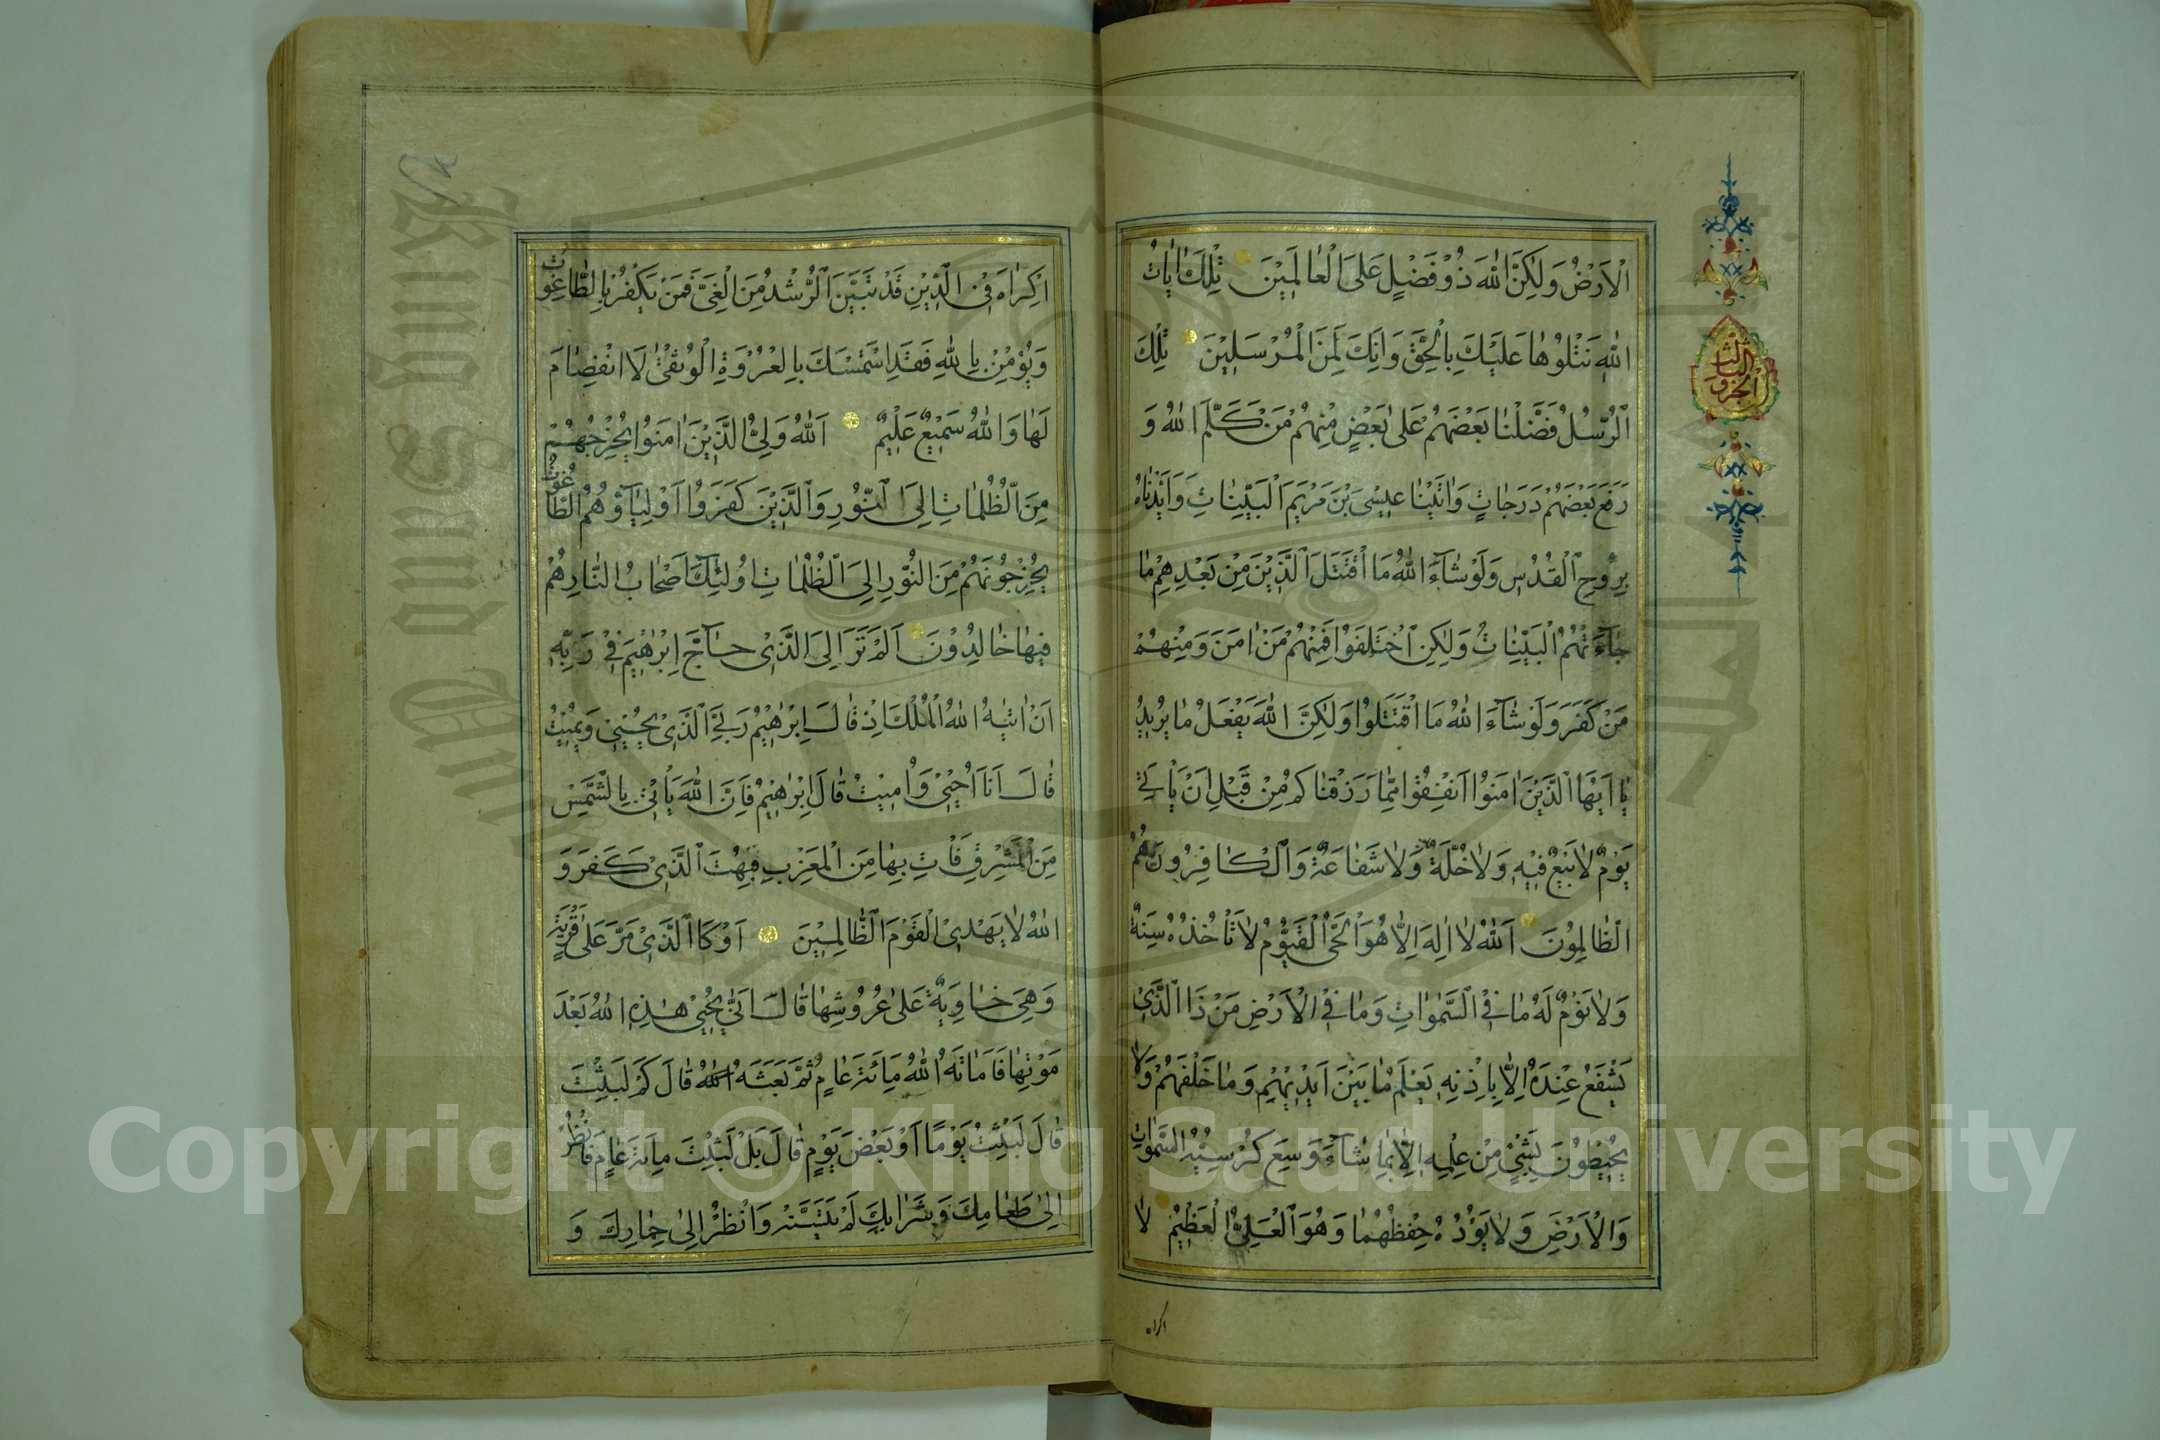 الْاَرْضُ وَلٰكِنَّ اللّٰهَ ذُوْفَضْلٍ عَلَى الْعٰالَمِيْنَ تِلْكَ اٰيٰاتُ
اللّٰهِ نَتْلُوهٰا عَلَيْكَ بِالْحَقِّ وَاِنَّكَ لَمِنَ الْمُرْسَلِيْنَ تِلْكَ
الرُّسُلُ فَضَّلْنٰا بَعْضَهُمْ عَلٰى بَعْضٍ مِنْهُمْ مَنْ كَلَّمَ اللّٰهُ وَ
رَفَعَ بَعْضَهُمْ دَرَجٰاتٍ وَاٰتَيْنٰا عِيْسَى بْنَ مَرْيَمَ الْبَيِّنٰاتِ وَاَيَّدْنٰاهُ
بِرُوحِ الْقُدُسِ وَلَوْ شٰآءَ اللّٰهُ مَا اقْتَتَلَ الَّذِيْنَ مِنْ بَعْدِهِمْ مٰا
جٰآءَتْهُمُ الْبَيِّنٰاتُ وَلٰكِنِ اخْتَلَفَوُا فَمِنْهُمْ مَنْ اٰمَنَ وَمِنْهُمْ
مَنْ كَفَرَ وَلَوْ شٰآءَ اللّٰهُ مَا اقْتَتَلُوا وَلٰكِنَّ اللّٰهَ يَفْعَلُ مٰا يُرِيْدُ
يٰا اَيُّهَا الَّذِيْنَ اٰمَنُوا اَنْفِقُوا مِمّٰا رَزَقْنٰاكُمْ مِنْ قَبْلِ اَنْ يَأْتِيَ
يَوْمٌ لٰا بَيْعٌ فِيْهِ وَلٰا خُلَّةٌ وَلٰا شَفٰاعَةٌ وَالْكٰافِرُونَ هُمُ
الظّٰالِمُوْنَ اَللّٰهُ لٰا اِلٰهَ اِلّٰا هُوَ الْحَيُّ الْقَيُّوْمُ لٰا تَأْخُذُهُ سِنَةٌ
وَلٰا نَوْمٌ لَهُ مٰا فِى السَّمٰوٰاتِ وَمٰا فِى الْاَرْضِ مَنْ ذَا الَّذِى
يَشْفَعُ عِنْدَهُ اِلّٰا بِاِذْنِهِ يَعْلَمُ مٰا بَيْنَ اَيْدِيْهِمْ وَمٰا خَلْفَهُمْ وَلٰا
يُحِيْطُوْنَ بِشَىْءٍ مِنْ عِلْمِهِ اِلّٰا بِمٰا شٰآءَ وَسِعَ كُرْسِيُّهُ السَّمٰوٰاتِ
وَالْاَرْضَ وَلٰا يَؤُدُهُ حِفْظُهُمٰا وَهُوَ الْعَلِىُّ الْعَظِيْمُ لٰا
اكراه
الجزو
الثالث
اِكْرٰاهَ فِى الدِّيْنِ قَدْ تَبَيَّنَ الرُّشْدُ مِنَ الْغَىِّ فَمَنْ يَكْفُرْ بِالطّٰاغُوتِ
وَيُؤْمِنْ بِاللّٰهِ فَقَدِ اسْتَمْسَكَ بِالْعُرْوَةِ الْوُثْقٰى لَا انْفِصٰامَ
لَهٰا وَاللّٰهُ سَمِيْعٌ عَلِيْمٌ اَللّٰهُ وَلِىُّ الَّذِيْنَ اٰمَنُوا يُخْرِجُهُمْ
مِنَ الظُّلُمٰاتِ اِلَى النُّوْرِ وَالَّذِيْنَ كَفَرَوُا اَوْلِيٰآؤُهُمُ الطّٰاغُوْتُ
يُخْرِجُونَهُمْ مِنَ النُّوْرِ اِلَى الظُّلُمٰاتِ اُولٰئِكَ اَصْحٰابُ النّٰارِ هُمْ
فِيهٰا خٰالِدُوْنَ اَلَمْ تَرَ اِلَى الَّذِىْ حٰآجَّ اِبْرٰهِيْمَ فِىْ رَبِّهِ
اَنْ اٰتٰيهُ اللّٰهُ الْمُلْكَ اِذْ قٰالَ اِبْرٰهِيْمُ رَبِّىَ الَّذِىْ يُحْيِىْ وَيُمِيْتُ
قٰالَ اَنَا اُحْيِىْ وَاُمِيْتُ قٰالَ اِبْرٰاهِيْمُ فَاِنَّ اللّٰهَ يَأْتِىْ بِالشَّمْسِ
مِنَ الْمَشْرِقِ فَأْتِ بِهٰا مِنَ الْمَغْرِبِ فَبُهِتَ الَّذِىْ كَفَرَ وَ
اللّٰهُ لٰا يَهْدِى الْقَوْمَ الظّٰالِمِيْنَ اَوْ كَا الَّذِىْ مَرَّ عَلٰى قَرْيَةٍ
وَهِىَ خٰاوِيَةٌ عَلٰى عُرُوشِهٰا قٰالَ اَنّٰى يُحْيِىْ هٰذِهِ اللّٰهُ بَعْدَ
مَوْتِهٰا فَاَمٰاتَهُ اللّٰهُ مِائَةَ عٰامٍ ثُمَّ بَعَثَهُ اللّٰهُ قٰالَ كَمْ لَبِثْتَ
قٰالَ لَبِثْتُ يَوْمًا اَوْ بَعْضَ يَوْمٍ قٰالَ بَلْ لَبِثْتَ مِائَةَ عٰامٍ فَانْظُرْ
اِلٰى طَعٰامِكَ وَشَرٰابِكَ لَمْ يَتَسَنَّهْ وَانْظُرْ اِلٰى حِمٰارِكَ وَ
Copyright © King Saud University